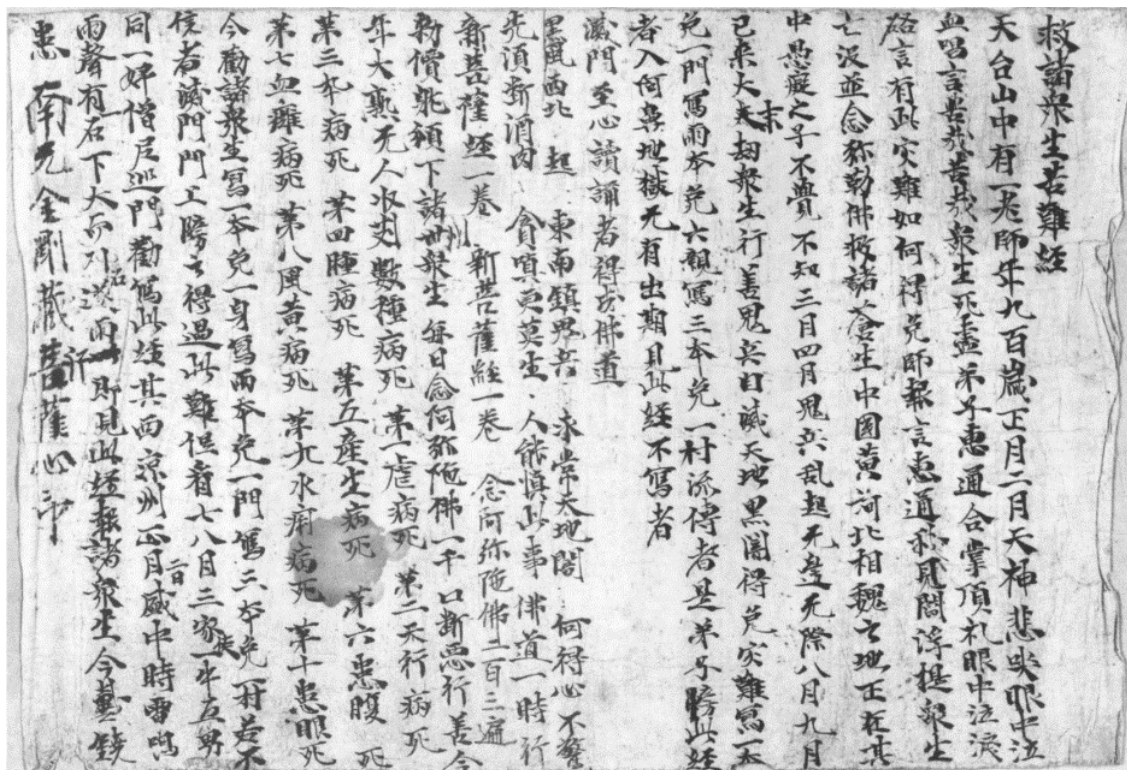 救諸眾生苦難経
天台山中有一老師年九百歲正月二月天神悲哭眼中泣
血唱言苦哉苦哉衆生死盡弟子惠通合掌頂礼眼中泣淚
啟言有此灾難如何得免師報言惠通我見閻浮提衆生
亡沒並念弥勒佛救諸蒼生中國黃河北相魏之地正在其
中愚癡之子不覺不知三月四月鬼兵乱起无邊无際八月九月
已来大末劫衆生行善鬼兵自滅天地黑闇得免灾難寫一本
免一門寫兩本免六親寫三本免一村流傳者是弟子謗此経
者入阿鼻地獄无有出期見此経不寫者
滅門至心讀誦者得成佛道
黑風西北起 東南鎮鬼兵 永常天地闇 何得心不驚
先須斷酒肉 貪嗔更莫生 人能慎此事 佛道一時行
新菩薩経一卷 新菩薩経一卷 念阿弥陁佛二百三遍
勑賈躭頒下諸州衆生每日念阿弥陁佛一千口斷惡行善今
年大熟无人收刈數種病死 第一虐病死 第二天行病死
第三卒病死 第四腫病死 第五産生病死 第六患腹死
第七血癰病死 第八風黃病死 第九水痢病死 第十患眼死
今勸諸衆生寫一本免一身寫兩本免一門寫三本免一村若不
信者滅門門上牓之得過此難但看七八月三家使一牛五男
同一婦僧尼巡門勸寫此経其西涼州正月二日盛中時雷鳴
雨聲有一石下大如斗石遂兩片即見此経報諸衆生今載饒
患 南无金剛藏菩薩心印